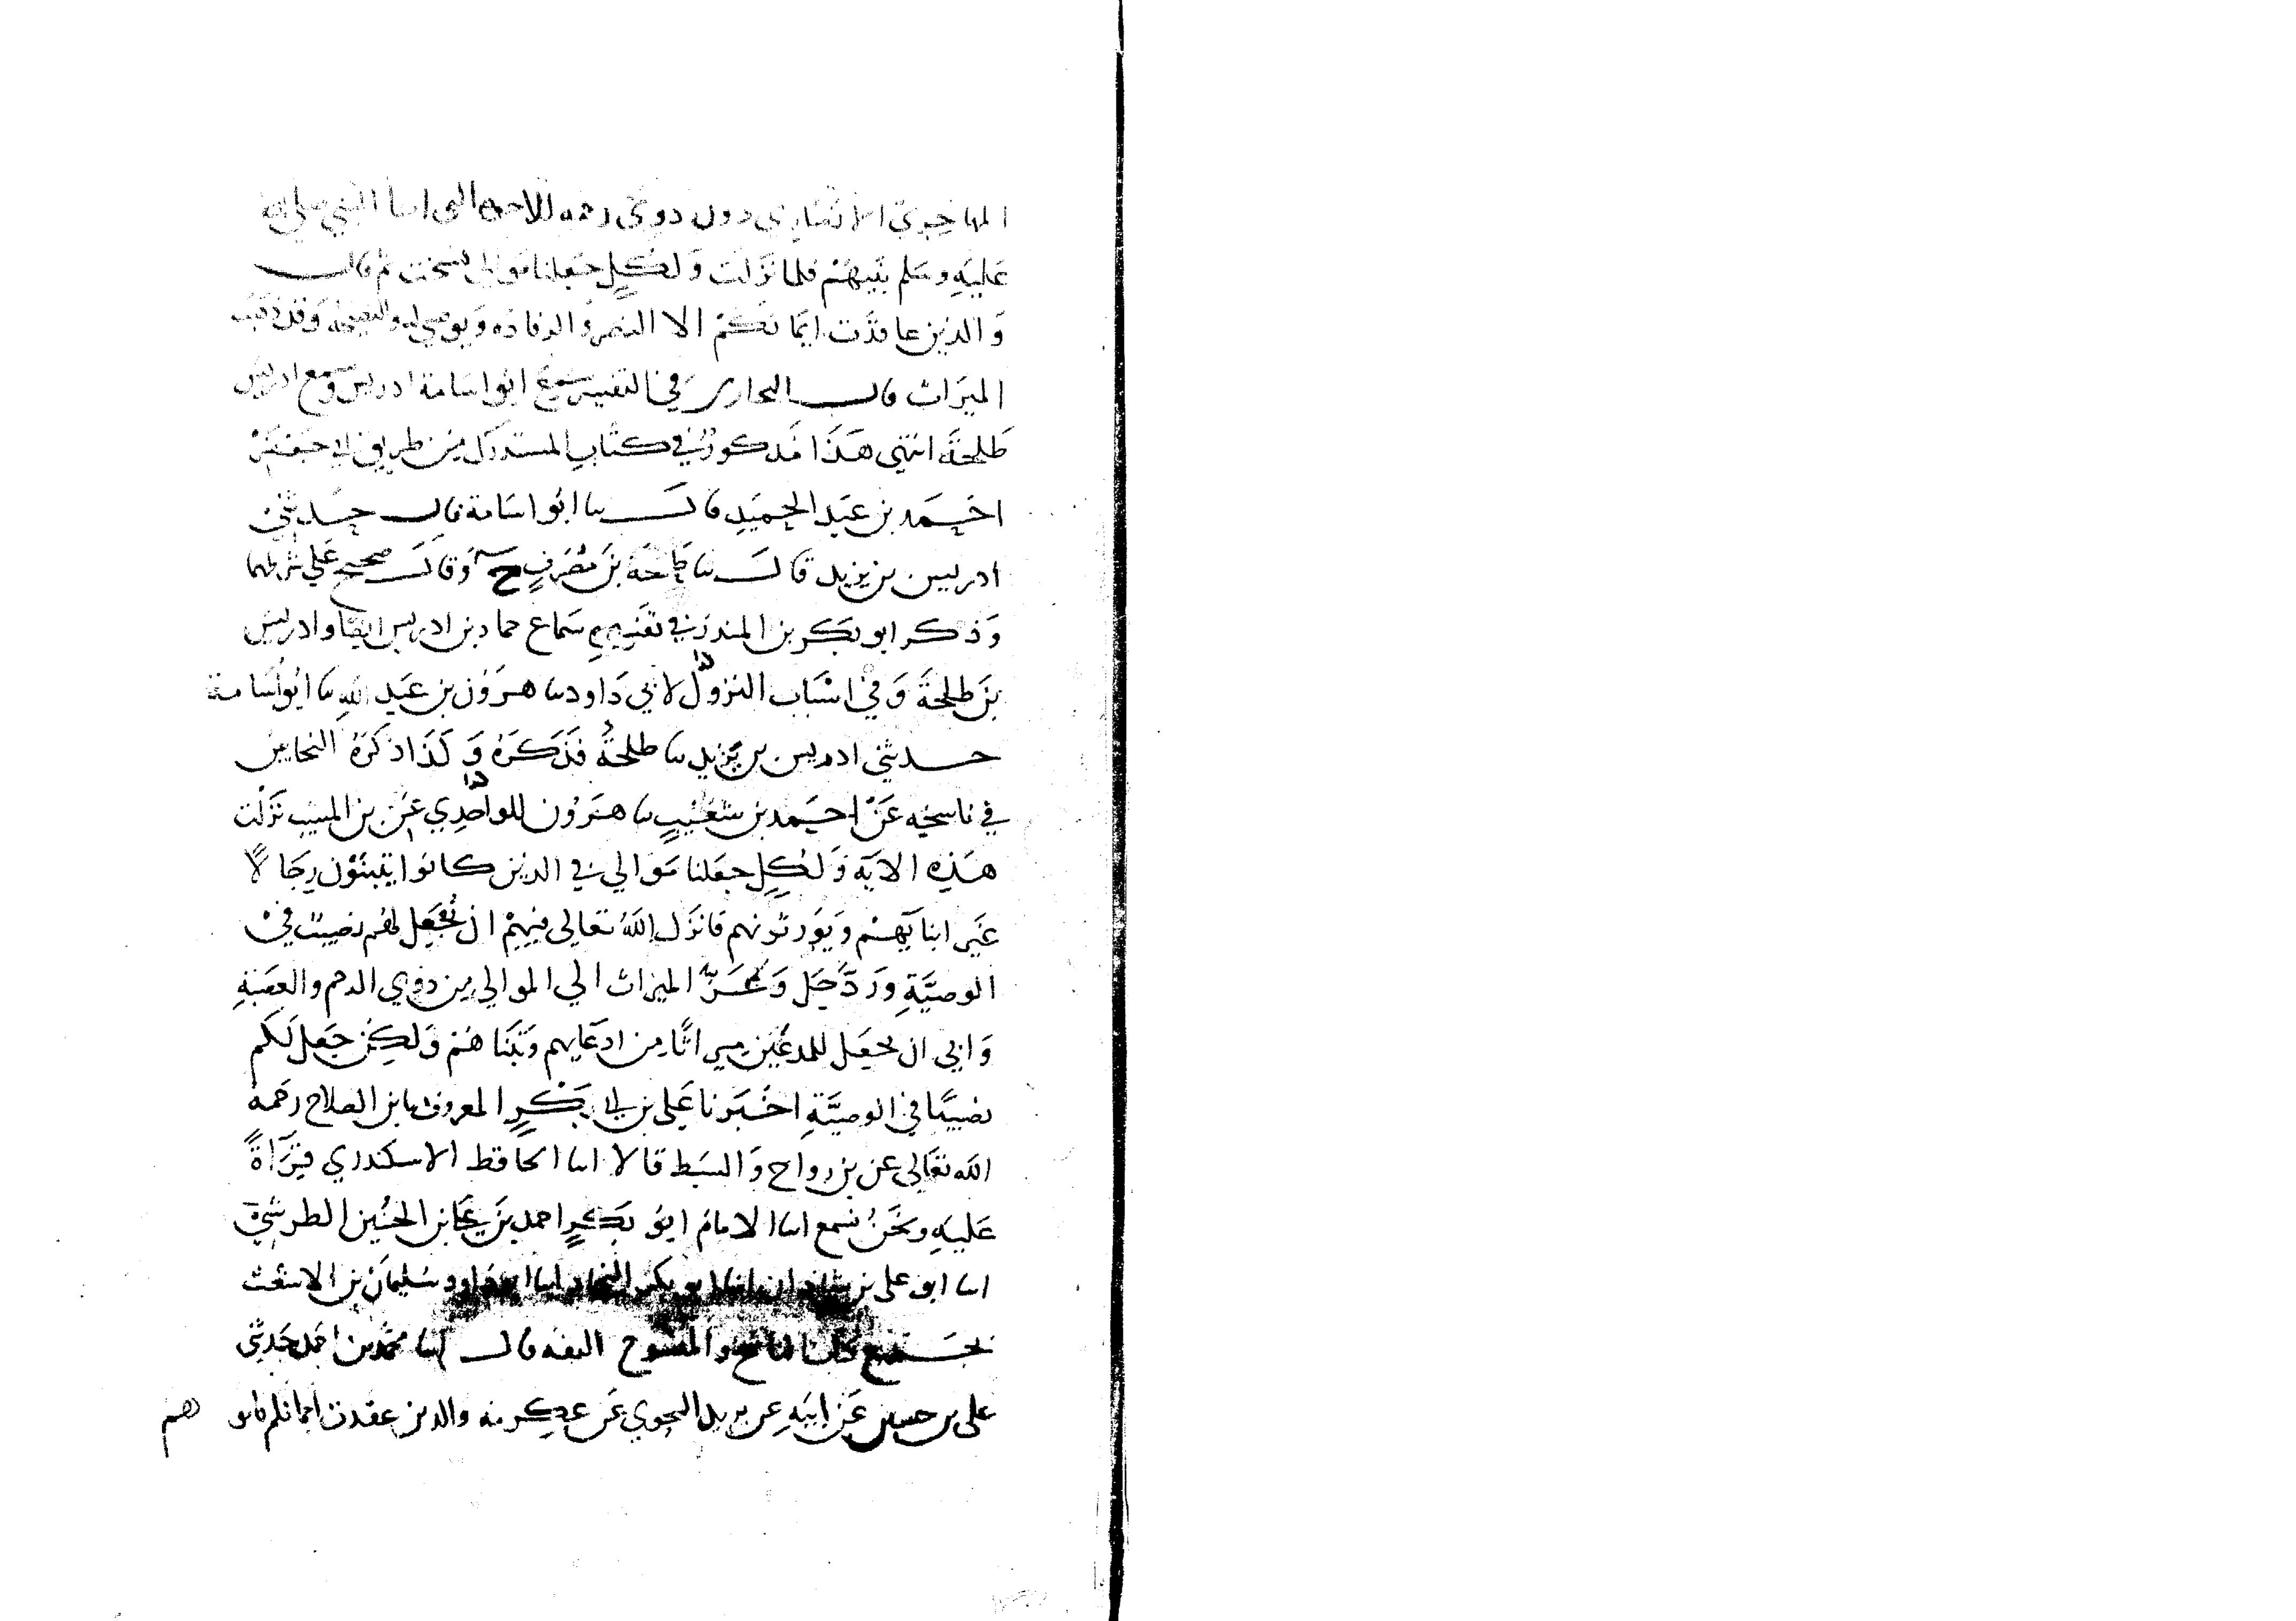 المهاجري الانصاري دون دوي رحمه للاخوة التي اسا النبي صلى الله
عَليهِ وسَلم بَينهُمْ فلما نَزلتْ وَلكُلٍ جَعَلنا مَوالي نسخت ثم قال
وَالذين عاقدَت ايمَانكُمْ الا النصر والوفادة وَيوصي له والنصيحة وَقد ذهَبَ
الميَراث قال البخاري في التفسير سَمِعَ ابُو اسَامة ادريس وسمع ادريس
طَلحَةَ انتهى هَذا مَذكورٌ في كتَاب المستدرك مِن طريق ابي جَعفَر
احَمد بن عَبد الحميَدِ قال سا ابُو اسَامة قال حَدثني
ادريس بن يزيد قالَ سا طلحَة بنَ مصَرفٍ ح وَقالَ صحيح عَلي شرطهما
وَذكر ابو بَكر بن المنذر في تفسيرهِ سَماع حماد بن ادريس ايضا وادريس
بنَ طلحَةَ وَفي اسْبَاب النزول لابي دَاود سا هرَوُن بن عَبد الله سا ابُو اُسَامة
حدثني ادريس بن يَزيد سا طلحةُ فذَكَرَهُ وَكَذا ذكرَهُ النحاس
في ناسخه عَنْ احمَد بن شعَيبٍ سا هَرَوُن للواحِدِي عَن بن المسيب نَزَلت
هَذِهِ الايَة وَلكُلٍ جعَلنا مَوالي في الذين كانوا يتبنَّوْن رِجَالاً
غَير ابنايهمْ وَيوَرثونهم فانزَل اللهُ تعالى فيهِمْ ان تُجعَل لهُم نصيبٌ في
الوصيَّةِ وَردّ جَل وَعَزّ الميراث الي الموالي مِن ذوِي الرحم والعَصَبةِ
وَابي ان يجعَل للمدعَين ميراثًا مِن ادعَايهم وَتبَناهُمْ وَلكِن جَعَل لَكم
نصيبًا في الوصيَّةِ اخْبَرنا عَلي بن ابي بَكْرٍ المعروف بابن الصلاح رَحمَهُ
الله تعَالي عن بن رواح وَالسبَط قالا اسا الحافظ الاسكندري قِرَآةً
عَليهِ ونحَنُ نسمع اسا الامام ابُو بَكرٍ احمد بنَ عَلي بن الحسُين الطرثيثي
اسا ابو على بن شاذان اسا ابو بكر النجاد اسا ابو داود سُليمَان بن الاشعَث
بجَميع كتاب الناسخ والمنسوخ الفه قال اسا محَمد بن احَمد حَدثني
على بن حسين عَن ابيَهِ عن يزيد النحوي عَن عكرمه والذين عقدت ايمانكم فاتو هم